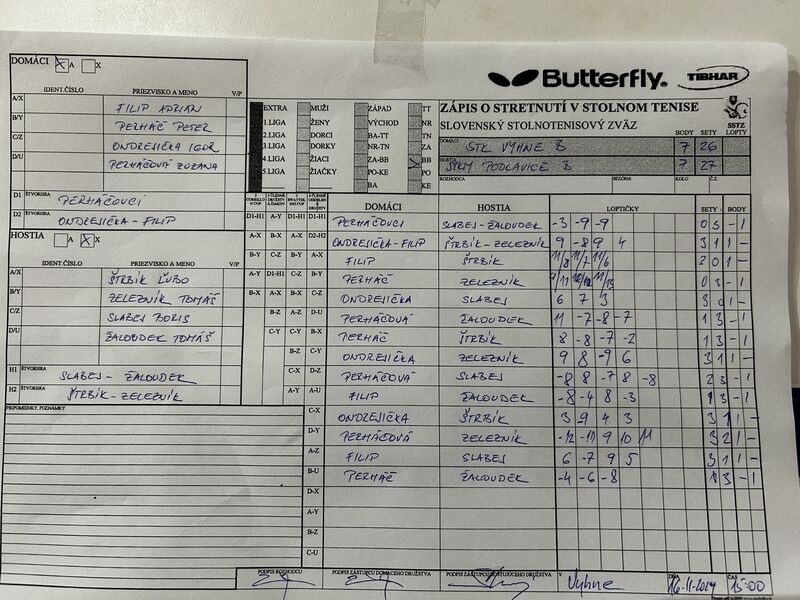 DOMÁCI X A X
IDENT.ČÍSLO PRIEZVISKO A MENO V/P
A/X FILIP ADRIAN
B/Y PERHÁČ PETER
C/Z ONDREJIČKA IGOR
D/U PERHÁČOVÁ ZUZANA
D1 ŠTVORHRA PERHÁČOVCI
D2 ŠTVORHRA ONDREJIČKA - FILIP
HOSTIA A X X
IDENT.ČÍSLO PRIEZVISKO A MENO V/P
A/X ŠTRBÍK ĽUBO
B/Y ŽELEZNÍK TOMÁŠ
C/Z SLABEJ BORIS
D/U ŽALOUDEK TOMÁŠ
H1 ŠTVORHRA SLABEJ - ŽALOUDEK
H2 ŠTVORHRA ŠTRBÍK-ŽELEZNÍK
PRIPOMIENKY, POZNÁMKY
Butterfly. TIBHAR
EXTRA MUŽI ZÁPAD TT
1 LIGA ŽENY VÝCHOD NR
2 LIGA DORCI BA-TT TN
3 LIGA DORKY NR-TN ZA
4 LIGA ŽIACI ZA-BB BB
5 LIGA ŽIAČKY PO-KE PO
BA KE
ZÁPIS O STRETNUTÍ V STOLNOM TENISE
SLOVENSKÝ STOLNOTENISOVÝ ZVÄZ SSTZ
BODY SETY LOPTY
DOMÁCI STK VYHNE B 7 26
HOSTIA STKM PODLAVICE B 7 27
ROZHODCA SEZÓNA KOLO Č.Z.
DOMÁCI HOSTIA LOPTIČKY SETY BODY
D1-H1 A-Y D1-H1 D1-H1 PERHÁČOVCI SLABEJ-ŽALOUDEK -3 -9 -9 0 3 - 1
A-X B-X A-X D2-H2 ONDREJIČKA-FILIP ŠTRBÍK-ŽELEZNÍK 9 -8 9 4 3 1 1 -
B-Y C-Z B-Y A-X FILIP ŠTRBÍK 11/8 11/7 11/6
A-Y D1-H1 C-Z B-Y PERHÁČ ŽELEZNÍK 0 3 - 1
B-X A-X A-X C-Z ONDREJIČKA SLABEJ 6 7 3 3 0 1 -
B-Z A-Z D-U PERHÁČOVÁ ŽALOUDEK 11 -7 -8 -7 1 3 - 1
C-Y C-Y B-X PERHÁČ ŠTRBÍK 8 -8 -7 -2 1 3 - 1
B-Z C-Y ONDREJIČKA ŽELEZNÍK 9 8 -9 6 3 1 1 -
C-X D-Z PERHÁČOVÁ SLABEJ -8 8 -7 8 -8 2 3 - 1
A-Y A-U FILIP ŽALOUDEK -8 -4 8 -3 1 3 - 1
C-X ONDREJIČKA ŠTRBÍK 3 -9 4 3 3 1 1 -
D-Y PERHÁČOVÁ ŽELEZNÍK -12 -10 9 10 11 3 2 1 -
A-Z FILIP SLABEJ 6 -7 9 5 3 1 1 -
B-U PERHÁČ ŽALOUDEK -4 -6 -8 3 - 1
D-X
A-Y
B-Z
C-U
PODPIS ROZHODCU PODPIS ZÁSTUPCU DOMÁCEHO DRUŽSTVA PODPIS ZÁSTUPCU HOSŤUJÚCEHO DRUŽSTVA V Vyhne DŇA 16.11.2024 ČAS 15:00